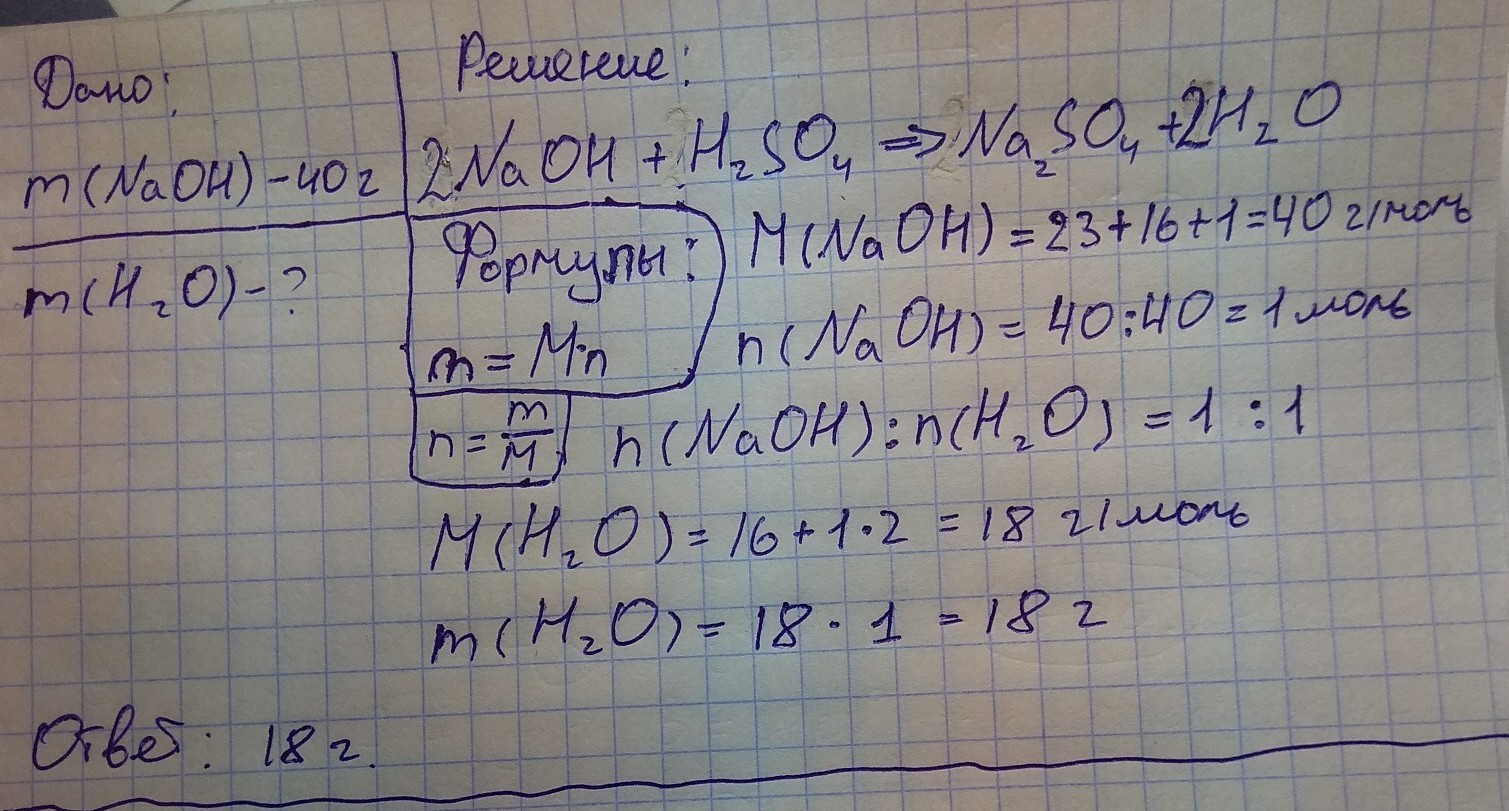 Дано:
m(NaOH) - 40 г
m(H₂O) - ?
Решение:
2NaOH + H₂SO₄ => Na₂SO₄ + 2H₂O
Формулы:
m = M·n
n = m/M
M(NaOH) = 23 + 16 + 1 = 40 г/моль
n(NaOH) = 40 : 40 = 1 моль
n(NaOH) : n(H₂O) = 1 : 1
M(H₂O) = 16 + 1·2 = 18 г/моль
m(H₂O) = 18 · 1 = 18 г
Ответ: 18 г.